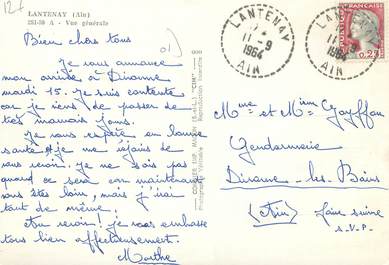 127
LANTENAY (Ain)
281-39 A - Vue générale
Bien chers tous
Je vous annonce
mon arrivée à Divonne
mardi 15. Je suis contente
car je viens de passer de
très mauvais jours.
Je vous espère en bonne
santé et je me réjouis de
vous revoir. Je ne sais pas
quand ce sera car maintenant
vous êtes loin, mais j'irai
tout de même.
Au revoir. Je vous embrasse
tous bien affectueusement.
Marthe
COMBIER IMP. MACON (S.-et-L.) "CIM"
Photographie Véritable
Reproduction Interdite
LANTENAY
11-9
1964
AIN
LANTENAY
11-9
1964
AIN
0,25
Mme et Mr Gayffon
Gendarmerie
Divonne-les-Bains
(Ain) faire suivre
S.V.P.